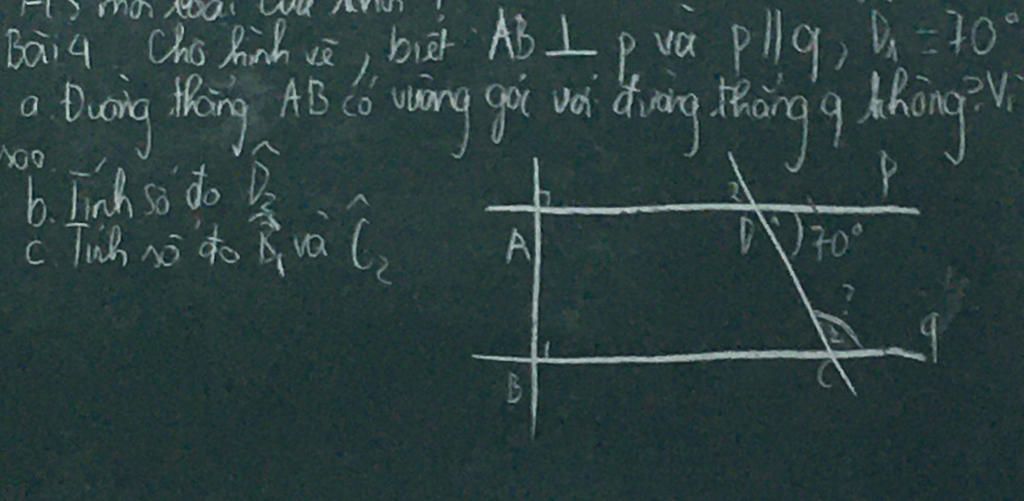 Bài 4 Cho hình vẽ, biết AB ⊥ p và p // q, D̂₁ = 70°
a. Đường thẳng AB có vuông góc với đường thẳng q không? Vì
sao
b. Tính số đo D̂₂
c. Tính số đo B̂₁ và Ĉ₂
p
2
A
D
1
70°
?
2
q
1
B
C